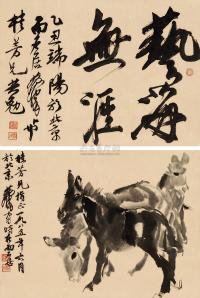 藝海
無涯
乙丑端陽於北京
居黄胄
桂芳兄共勉
桂芳兄指正一九八五年六月
於北京黄胄時